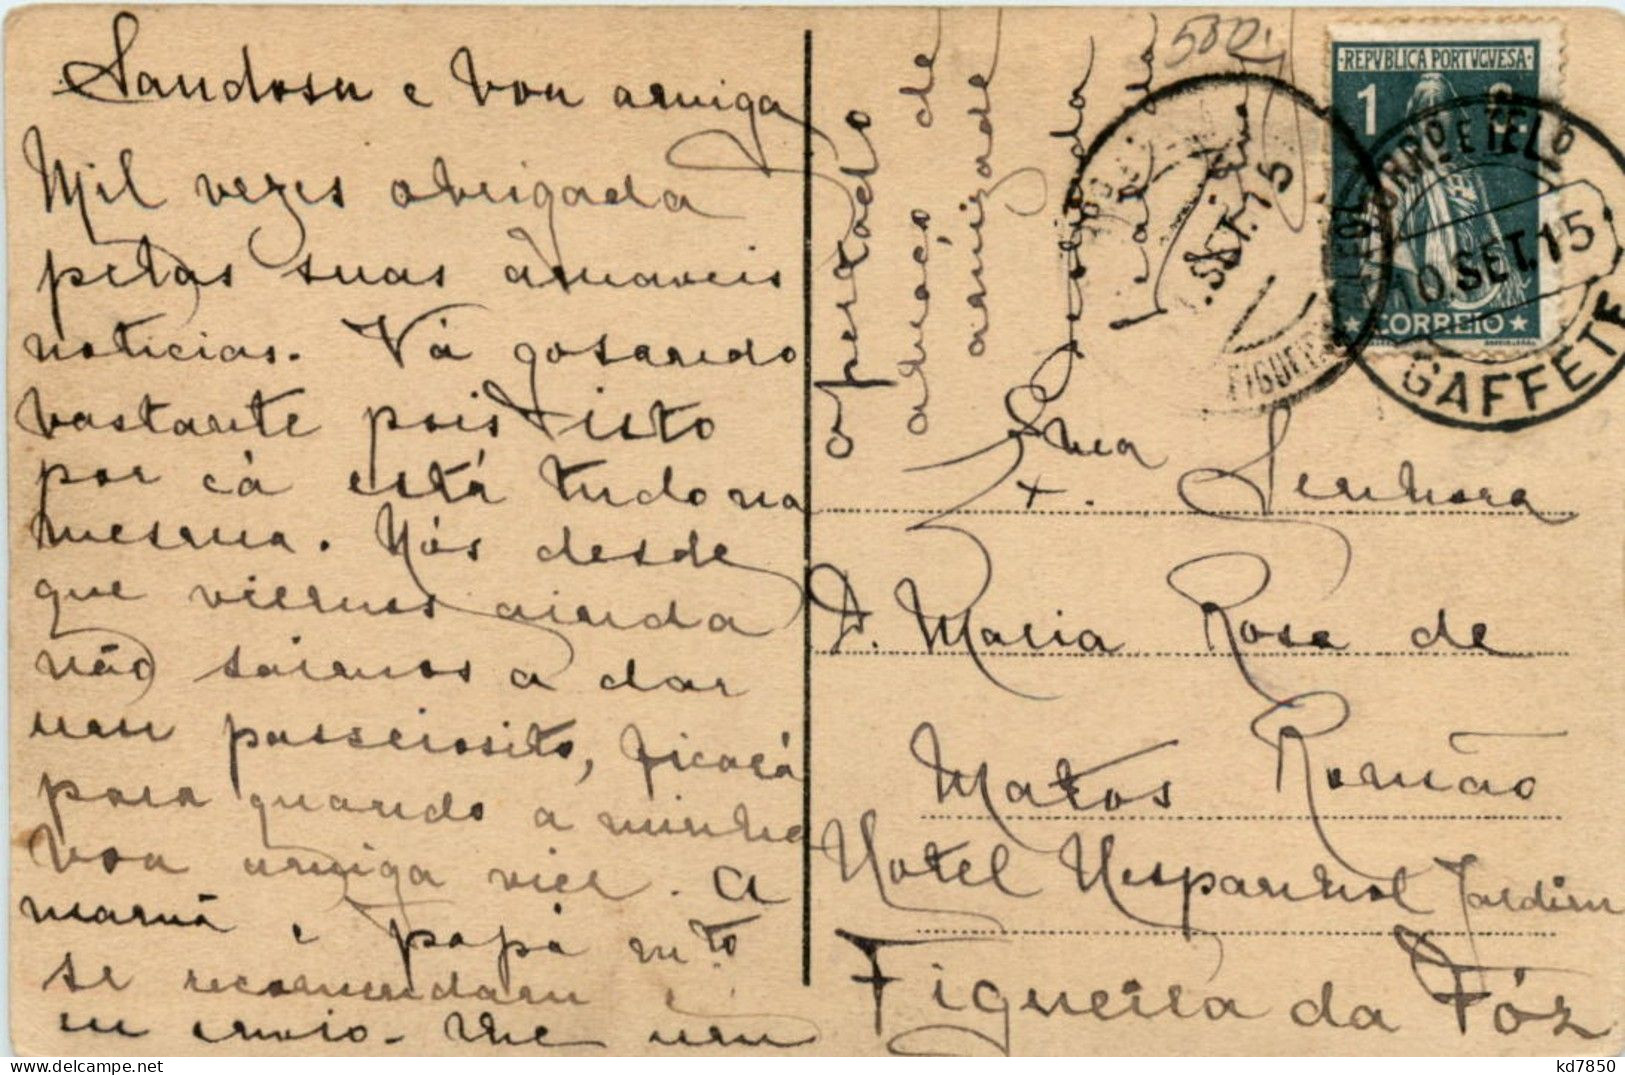 Saudosa e boa amiga
Mil vezes obrigada
pelas suas amaveis
noticias. Vá gosando
bastante pois isto
por cá está tudo na
mesma. Nós desde
que viemos ainda
não saimos a dar
um passeiosito, ficará
para quando a minha
boa amiga vier. A
mamã e papá mto
se recomendam e
eu envio-lhe um
apertado
abraço de
amizade
dedicada
leal da
500
REPVBLICA PORTVGVESA
1 C.
CORREIO
CORRO E TELO
10. SET. 15
GAFFETE
SET. 15
FIGUEIRA
Exma Senhora
D. Maria Rosa de
Matos Romão
Hotel Hespanhol Jardim
Figueira da Fóz
kd7850